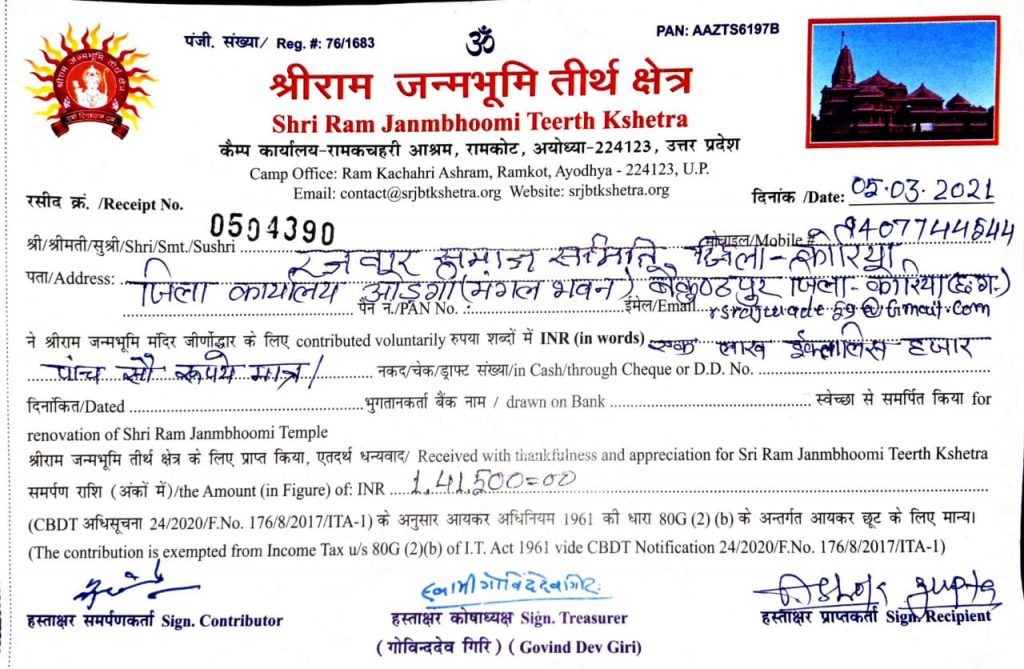 पंजी. संख्या/ Reg. #: 76/1683
ॐ
PAN: AAZTS6197B
श्रीराम जन्मभूमि तीर्थ क्षेत्र
Shri Ram Janmbhoomi Teerth Kshetra
कैम्प कार्यालय-रामकचहरी आश्रम, रामकोट, अयोध्या-224123, उत्तर प्रदेश
Camp Office: Ram Kachahri Ashram, Ramkot, Ayodhya - 224123, U.P.
Email: contact@srjbtkshetra.org Website: srjbtkshetra.org
रसीद क्र. /Receipt No. 0504390
दिनांक /Date: 05.03.2021
श्री/श्रीमती/सुश्री/Shri/Smt./Sushri रजवार समाज समिति, जिला-कोरिया मोबाइल/Mobile # 9407744644
पता/Address: जिला कार्यालय ओड़गी (मंगल भवन) बैकुण्ठपुर जिला-कोरिया (छ.ग.)
पैन न./PAN No. : ईमेल/Email rsrajwade69@Gmail.com
ने श्रीराम जन्मभूमि मंदिर जीर्णोद्धार के लिए contributed voluntarily रुपया शब्दों में INR (in words) एक लाख इकतालिस हजार
पांच सौ रूपये मात्र/ नकद/चेक/ड्राफ्ट संख्या/in Cash/through Cheque or D.D. No.
दिनांकित/Dated भुगतानकर्ता बैंक नाम / drawn on Bank स्वेच्छा से समर्पित किया for
renovation of Shri Ram Janmbhoomi Temple
श्रीराम जन्मभूमि तीर्थ क्षेत्र के लिए प्राप्त किया, एतदर्थ धन्यवाद/ Received with thankfulness and appreciation for Sri Ram Janmbhoomi Teerth Kshetra
समर्पण राशि (अंकों में)/the Amount (in Figure) of: INR 1,41,500=00
(CBDT अधिसूचना 24/2020/F.No. 176/8/2017/ITA-1) के अनुसार आयकर अधिनियम 1961 की धारा 80G (2) (b) के अन्तर्गत आयकर छूट के लिए मान्य।
(The contribution is exempted from Income Tax u/s 80G (2)(b) of I.T. Act 1961 vide CBDT Notification 24/2020/F.No. 176/8/2017/ITA-1)
स्वामी गोविंददेव गिरि
हस्ताक्षर समर्पणकर्ता Sign. Contributor
हस्ताक्षर कोषाध्यक्ष Sign. Treasurer
हस्ताक्षर प्राप्तकर्ता Sign. Recipient
(गोविन्ददेव गिरि) ( Govind Dev Giri)